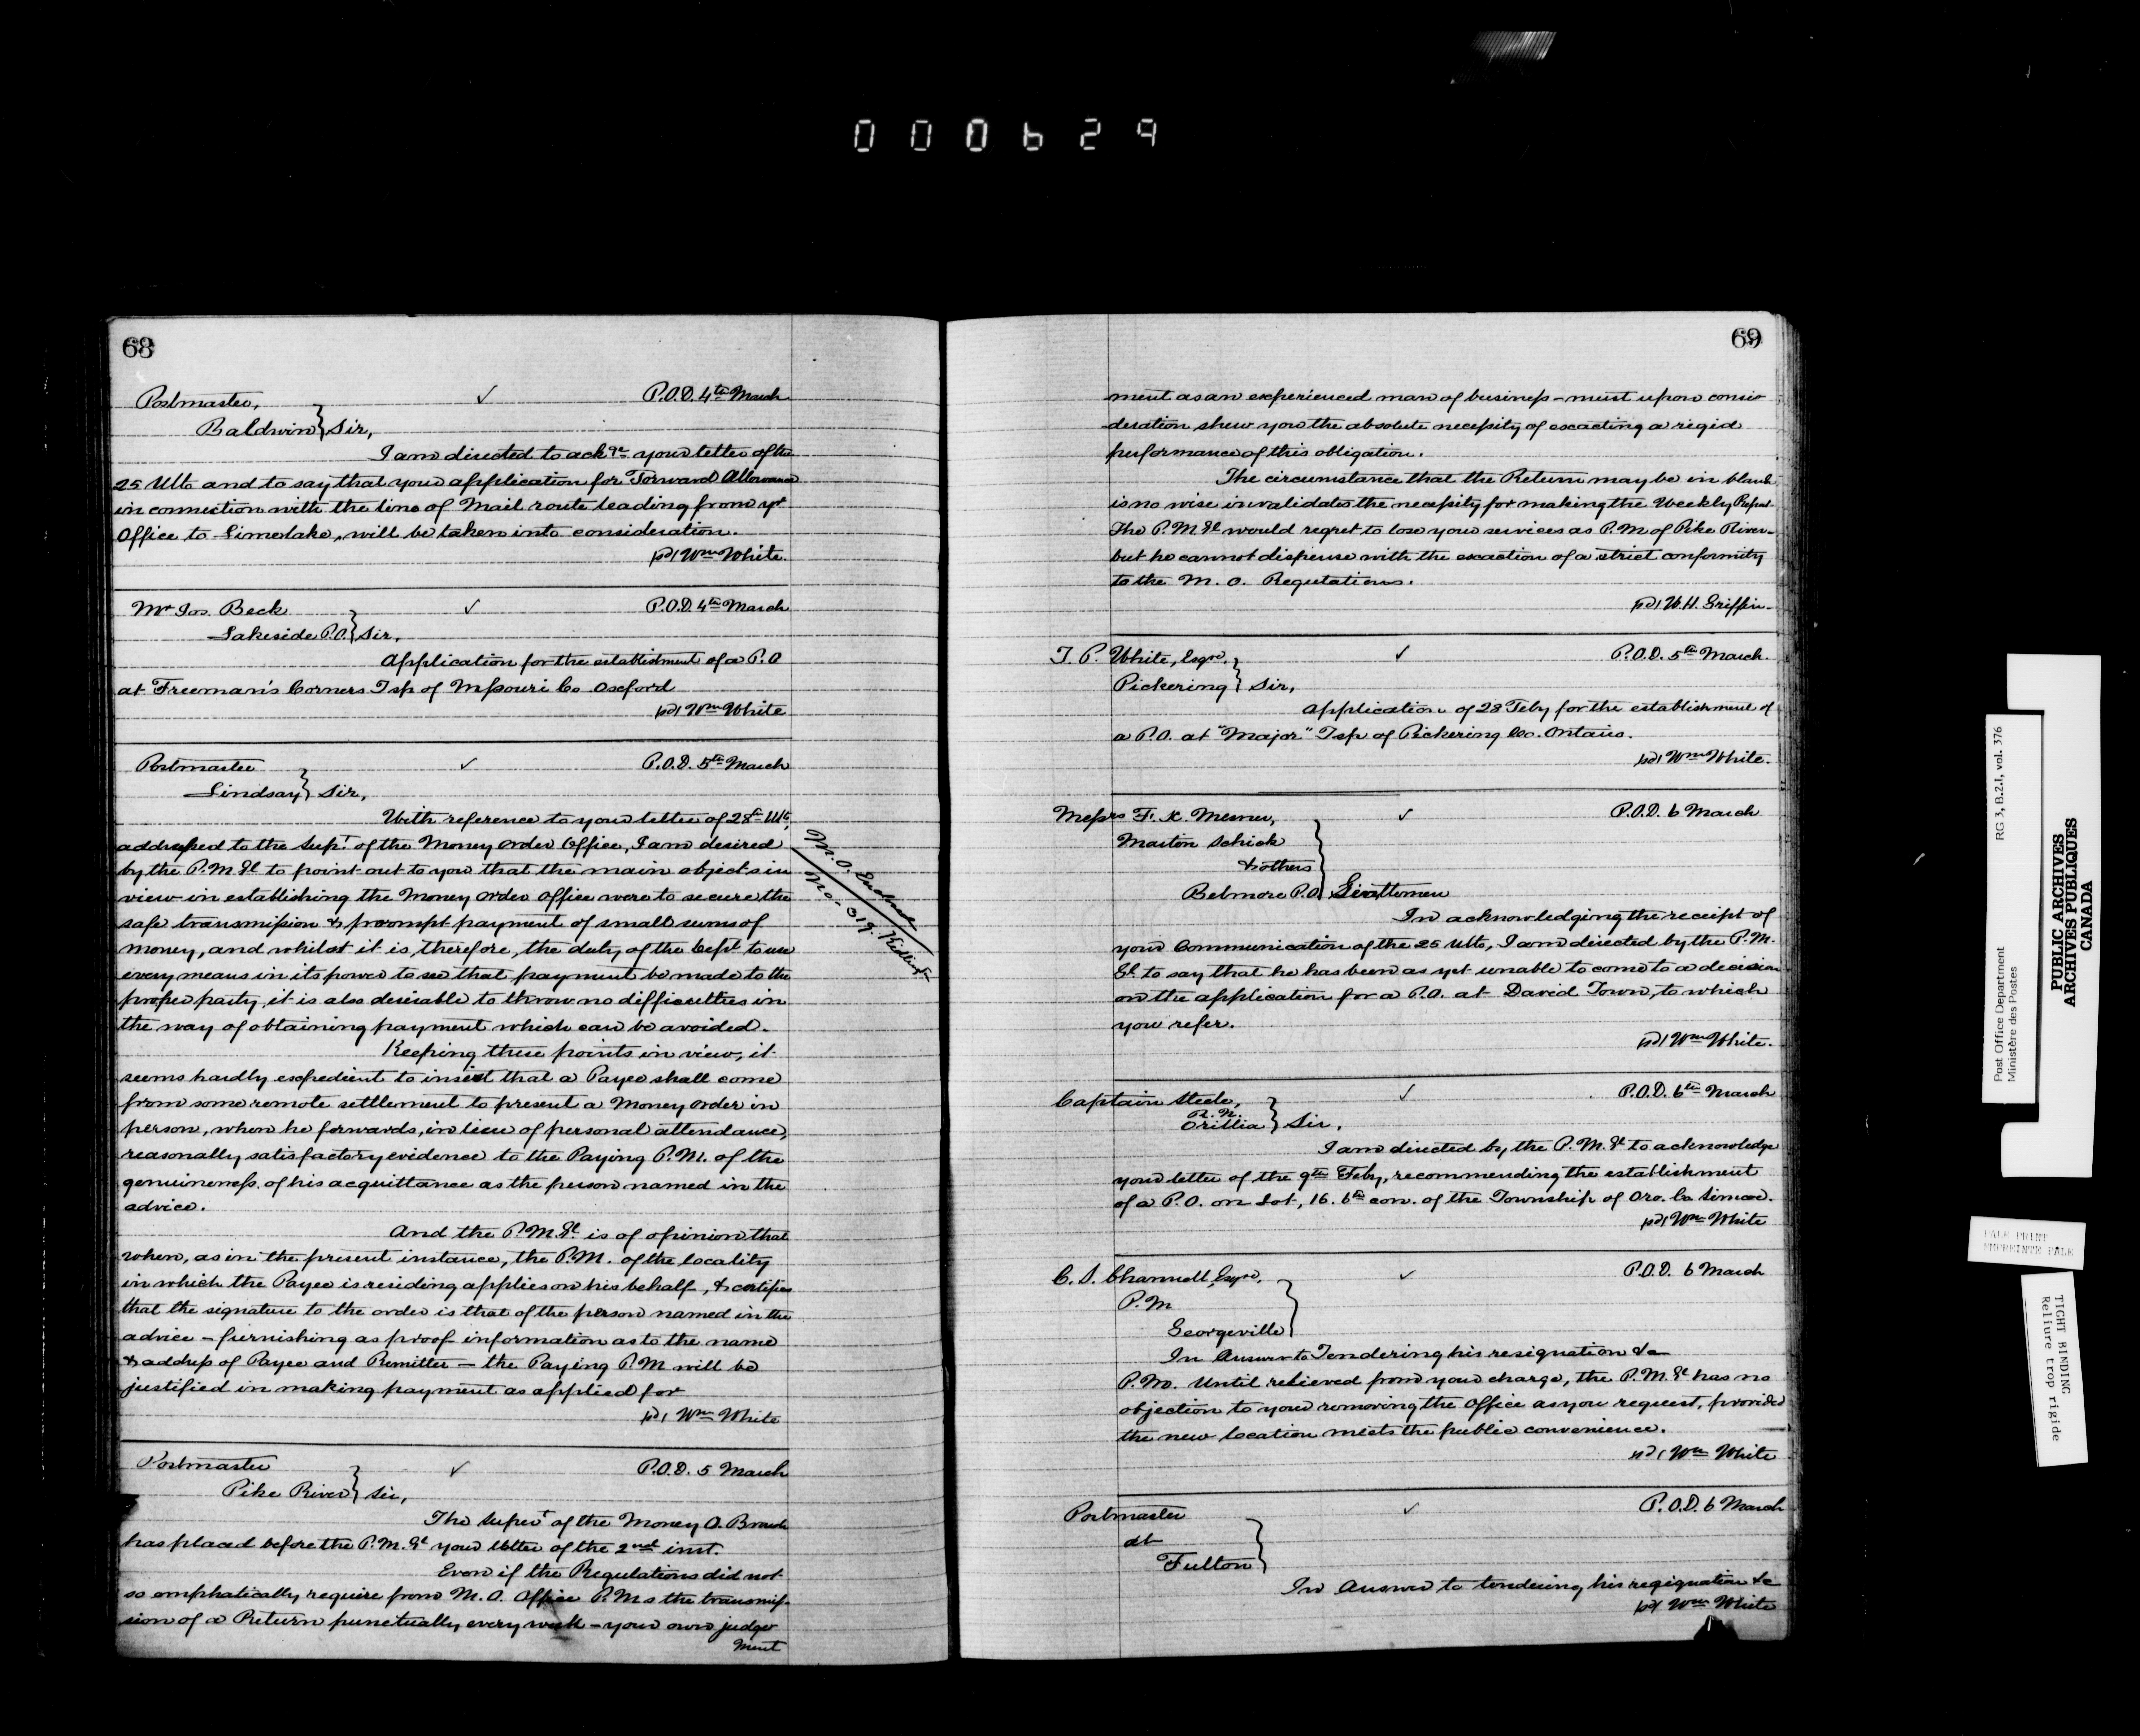 000629
68
Postmaster, ✓ P.O.D. 4th March
Baldwin } Sir,
I am directed to ackge your letter of the
25 Ulto and to say that your application for Forward Allowance
in connection with the line of Mail route leading from yr
Office to Limerlake, will be taken into consideration.
Wm White.
Mr Jos. Beck ✓ P.O.D. 4th March
Lakeside P.O. } Sir,
Application for the establishment of a P.O
at Freeman's Corners Tsp of Missouri Co Oxford
Wm White
Postmaster ✓ P.O.D. 5th March
Lindsay } Sir,
With reference to your letter of 28th Ulto,
addressed to the Supt of the Money order Office, I am desired
by the P.M.Gl to point out to you that the main objects in
view in establishing the Money order Office were to secure the
safe transmission & prompt payment of small sums of
money, and whilst it is, therefore, the duty of the Dept to use
every means in its power to see that payment be made to the
proper party, it is also desirable to throw no difficulties in
the way of obtaining payment which can be avoided.
M.O.
No. 319.
Keeping these points in view, it
seems hardly expedient to insist that a Payee shall come
from some remote settlement to present a Money order in
person, when he forwards, in lieu of personal attendance,
reasonally satisfactory evidence to the Paying P.M. of the
genuineness of his acquittance as the person named in the
advice.
And the P.M.Gl is of opinion that
when, as in the present instance, the P.M. of the locality
in which the Payee is residing applies on his behalf, & certifies
that the signature to the order is that of the person named in the
advice – furnishing as proof information as to the name
& address of Payee and Remitter — the Paying P.M will be
justified in making payment as applied for
Wm White
Postmaster ✓ P.O.D. 5 March
Pike River } Sir,
The Supert of the Money O. Branch
has placed before the P.M.Gl your letter of the 2nd inst.
Even if the Regulations did not
so emphatically require from M.O. Office P.Ms the transmis-
sion of a Return punctually every week – your own judge
ment
69
ment as an experienced man of business – must upon consi-
deration shew you the absolute necessity of exacting a rigid
performance of this obligation.
The circumstance that the Return may be in blank
is no wise invalidates the necessity for making the Weekly Report.
The P.M.Gl would regret to lose your services as P.M of Pike River–
but he cannot dispense with the exaction of a strict conformity
to the M.O. Regulations.
W.H. Griffin
T. P. White, Esqre, ✓ P.O.D. 5th March.
Pickering } Sir,
Application of 28 Feby for the establishment of
a P.O. at "Major" Tsp of Pickering Co. Ontario.
Wm White.
Messrs F. K. Mesner, ✓ P.O.D. 6 March
Marton Schick
& others
Belmore P.O. } Gentlemen
In acknowledging the receipt of
your Communication of the 25 Ulto, I am directed by the P.M.
Gl to say that he has been as yet unable to come to a decision
on the application for a P.O. at David Town, to which
you refer.
Wm White.
Captain Steele, ✓ P.O.D. 6th March
R.N.
Orillia } Sir,
I am directed by the P.M.Gl to acknowledge
your letter of the 9th Feby, recommending the establishment
of a P.O. on Lot, 16. 6th con. of the Township of Oro. Co Simcoe.
Wm White
C. S. Channell, Esqre, ✓ P.O.D. 6 March
P.M
Georgeville }
In Answer to Tendering his resignation &c
P.M. Until relieved from your charge, the P.M.Gl has no
objection to your removing the Office as you request, provided
the new location meets the public convenience.
Wm White
Postmaster ✓ P.O.D. 6 March
at
Fulton }
In Answer to tendering his resignation &c
Wm White
Post Office Department RG 3, B.2.I, vol. 376
Ministère des Postes
PUBLIC ARCHIVES
ARCHIVES PUBLIQUES
CANADA
PALE PRINT
EMPREINTE PALE
TIGHT BINDING
Reliure trop rigide